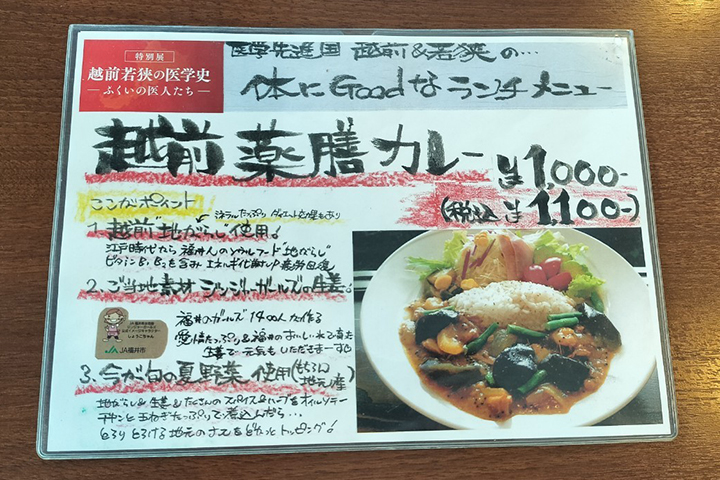 特別展
越前若狭の医学史
―ふくいの医人たち―
医学先進国 越前&若狭の…
体にGoodなランチメニュー
越前薬膳カレー
¥1,000-
(税込 ¥1,100-)
ここがポイント
ミネラルたっぷり ダイエット効果もあり
1. 越前"地がらし"使用!
江戸時代から福井人のソウルフード"地がらし"
ビタミンB1 B2を含み エネルギー代謝UP 疲労回復
2. ご当地素材 ジンジャーガールズの生姜
福井のガールズ1400人が作る
愛情たっぷり&福井のおいしい水で育った
生姜で 元気もいただきまーす
しょうこちゃん
JA JA福井市
3. 今が旬の夏野菜 使用(もちろん地元産)
地がらし&生姜&たくさんのスパイス&ハーブをオイルでソテー
チキンと玉ねぎたっぷりで煮込んだら…
とろり とろける地元のナスをどどーっとトッピング!